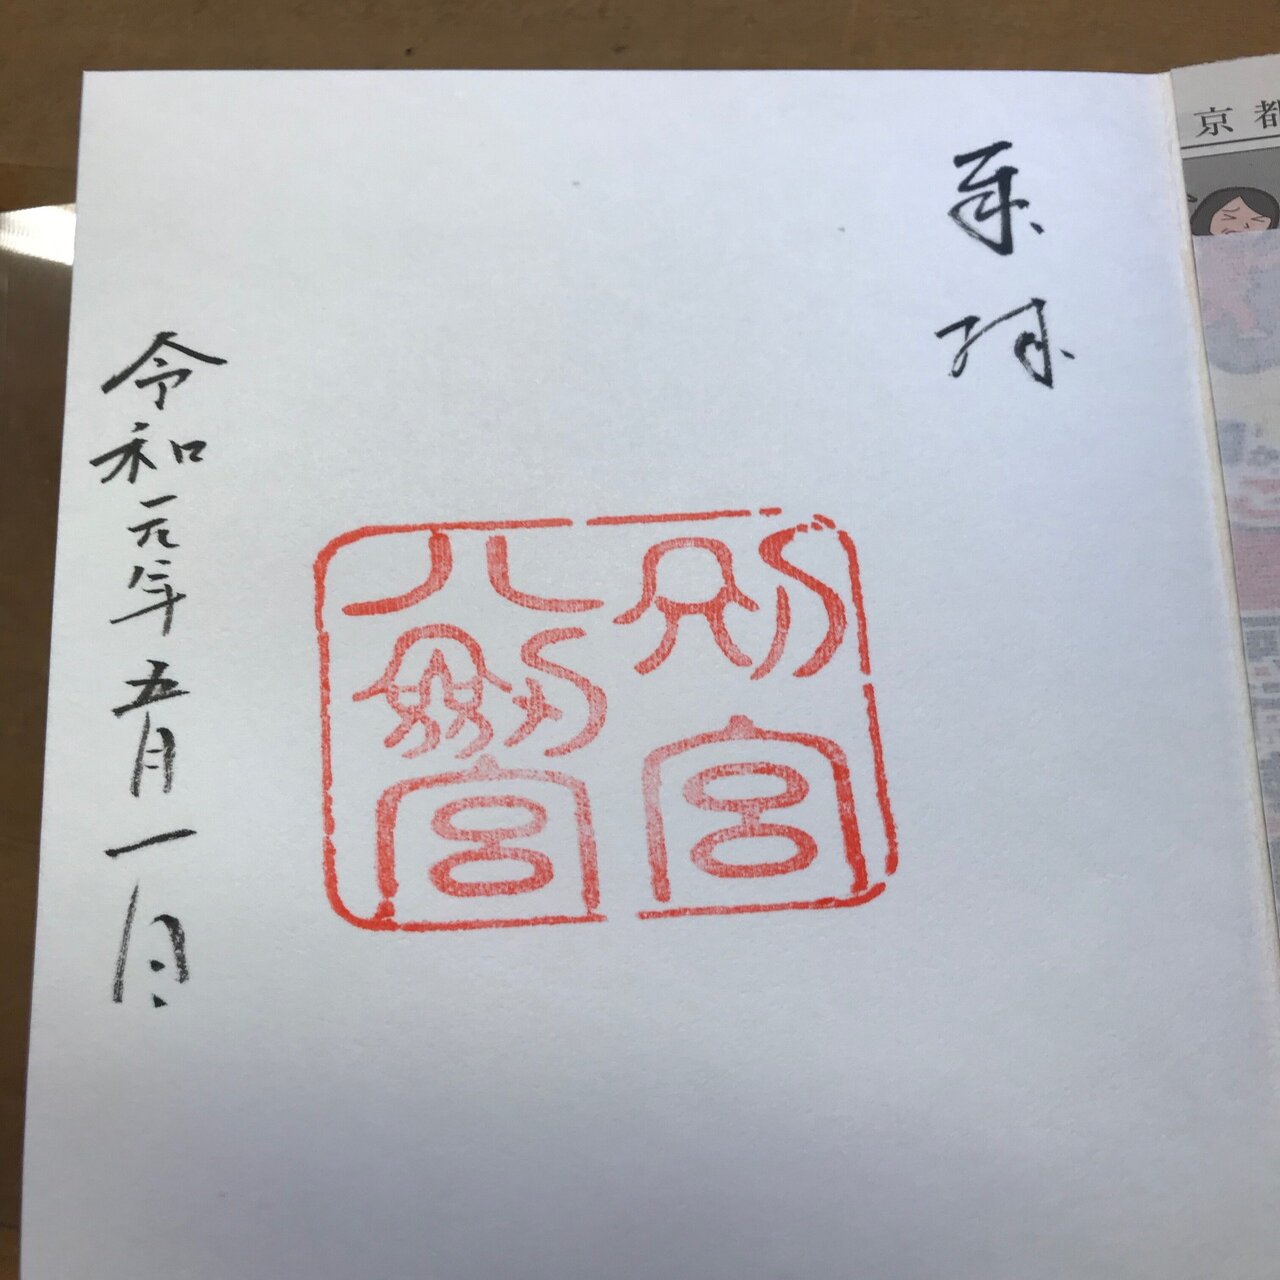 京都
奉拝
別宮
八劔宮
令和元年五月一日